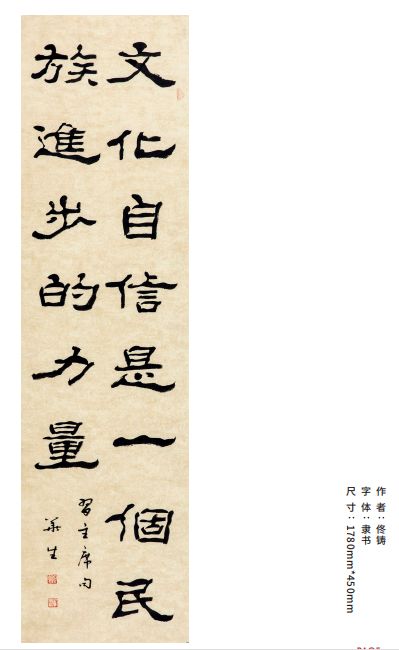 文化自信是一個民
族進步的力量
習主席句
華生
作 者：佟铸
字 体：隶书
尺 寸：1780mm*450mm